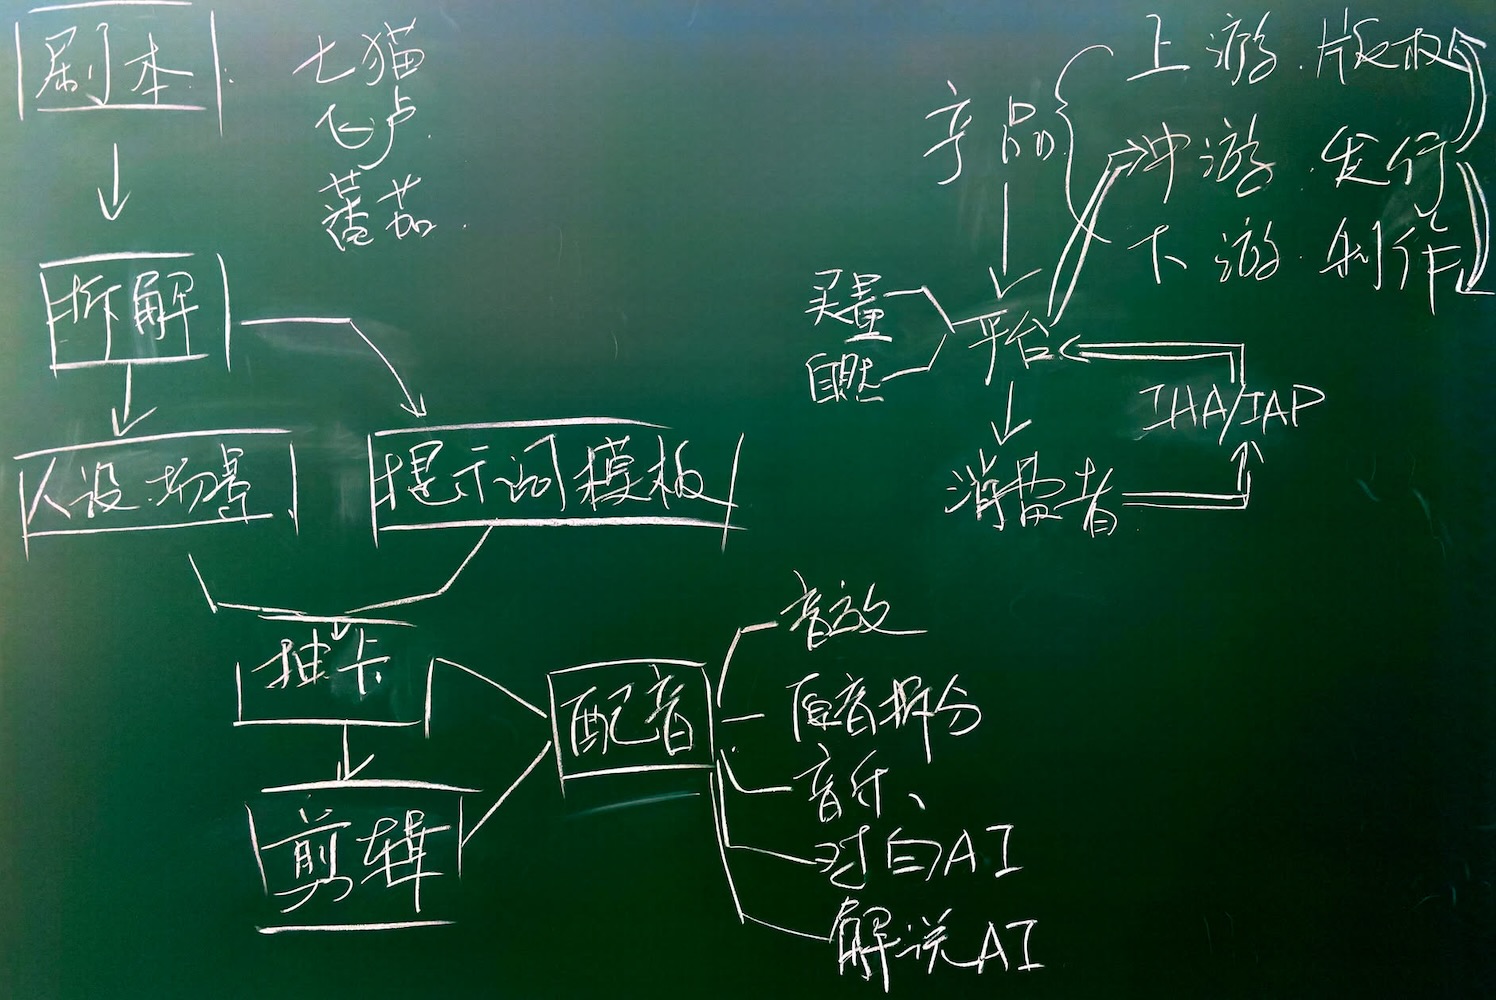 剧本
七猫
飞卢
蕃茄
拆解
人设.场景
提示词模板
抽卡
剪辑
配音
音效
原音拆分
音乐、
对白AI
解说AI
产品
上游.版权
中游.发行
下游.制作
买量
自然
平台
IHA/IAP
消费者